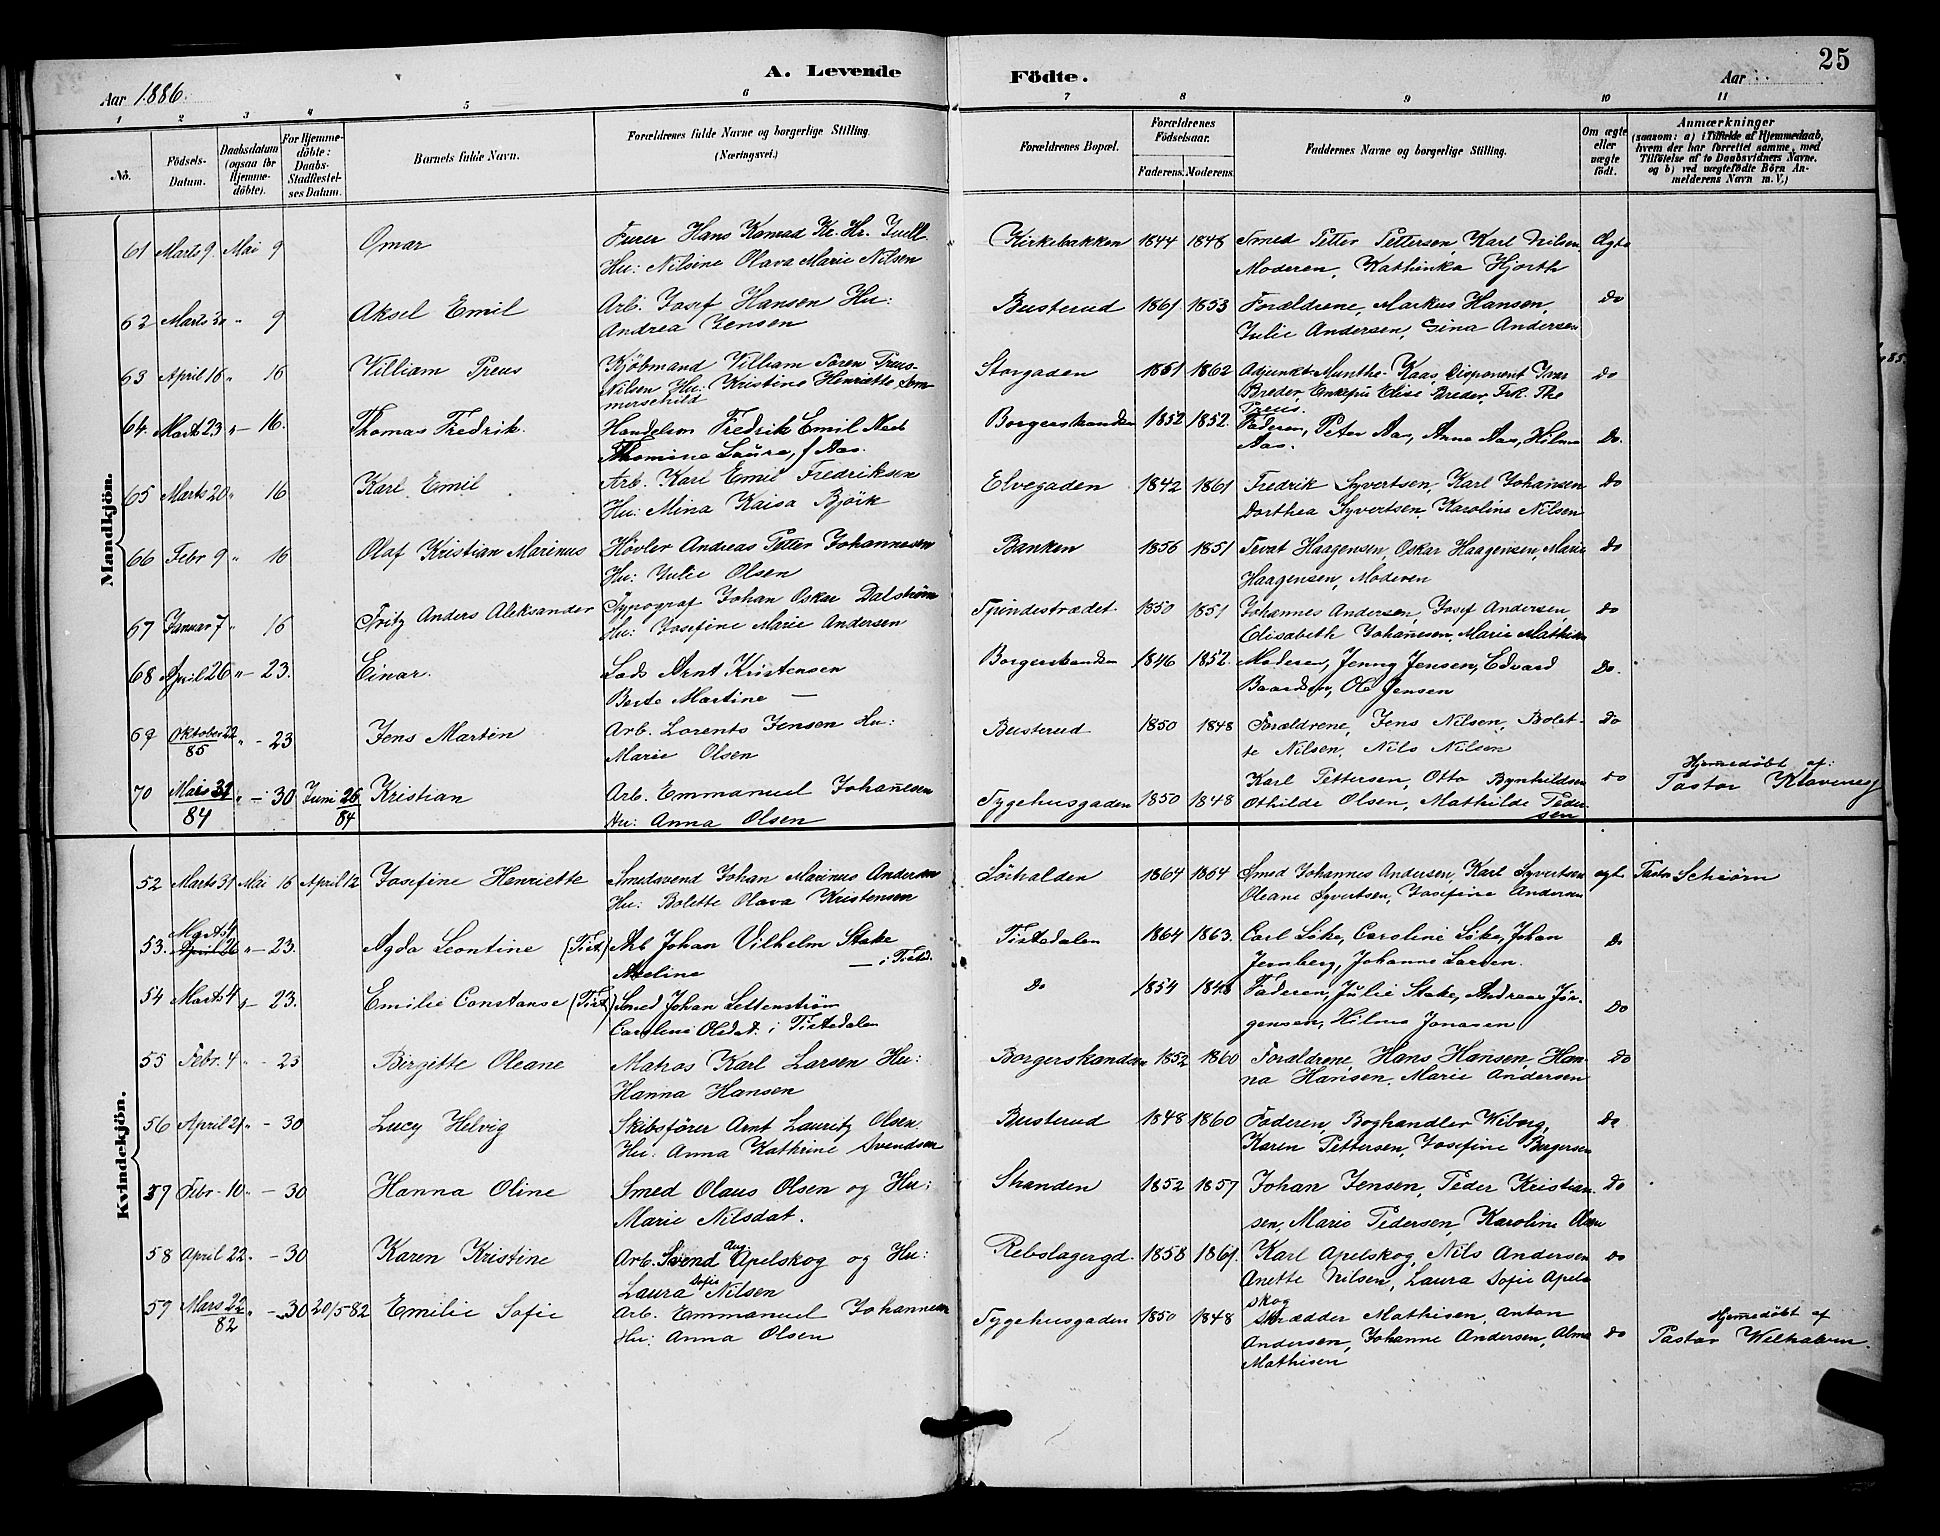 25
A. Levende Födte.
Aar 1886.
Aar
1 2 3 4 5 6 7 8 9 10 11
No.
Födsels-Datum.
Daabsdatum (ogsaa for Hjemme-döbte).
For Hjemme-döbte: Daabs-Stadfæstel-ses Datum.
Barnets fulde Navn.
Forældrenes fulde Navne og borgerlige Stilling. (Næringsvei.)
Forældrenes Bopæl.
Forældrenes Födselsaar.
Faderens. Moderens.
Faddernes Navne og borgerlige Stilling.
Om ægte eller uægte födt.
Anmærkninger
(saasom: a) i Tilfælde af Hjemmedaab,
hvem der har forrettet samme, med
Tilföielse af to Daabsvidners Navne,
og b) ved uægtefödte Börn An-
melderens Navn m. V.)
Mandkjön.
61 Marts 9. Mai 9 Omar Furer Hans Konrad Kr. Hr. Juell Kirkebakken 1844 1848 Smed Petter Pettersen, Karl Nilsen, Ægte
Hu: Nilsine Olava Marie Nilsen Moderen, Kathinka Hjorth
62 Marts 30 " 9 Aksel Emil Arb. Josef Hansen Hu: Busterud 1861 1853 Forældrene, Markus Hansen, Do
Andrea Jensen Julie Andersen, Gina Andersen
63 April 16 " 16 Villiam Preus Kjöbmand Villiam Sören Preus Storgaden 1851 1862 Adjunkt Munthe-Kaas, Disponent Ivar Do
Nilsen Hu: Kristine Henriette Som- Breder, Enkefru Elise Breder, Frk. The
merschild Preus.
64. Marts 23 " 16. Thomas Fredrik. Handelsm Fredrik Emil Borgerskandsen 1852 1852. Faderen, Peter Aas, Anna Aas, Hilma Do.
Thomine Laura, f Aas. Aas.
65 Marts 20 " 16 Karl Emil Arb. Karl Emil Fredriksen Elvegaden 1842 1861 Fredrik Syvertsen, Karl Johansen Do
Hu: Mina Kaisa Björk Dorthea Syvertsen, Karoline Nilsen
66 Febr 9 " 16 Olaf Kristian Marinus Hövler Andreas Petter Johannesen Banken 1856 1851 Haagensen, Oskar Haagensen, Marie Do
Hu: Julie Olsen Haagensen, Moderen
67 Januar 7 " 16 Fritz Anders Aleksander Typograf Johan Oskar Dalström Spindestrædet 1850 1851 Johannes Andersen, Josef Andersen, Do
Hu: Josefine Marie Andersen Elisabeth Johansen, Marie Mathisen
68 April 26 " 23. Einar. Lods Arnt Kristensen Borgerskandsen 1846 1852. Moderen, Jenny Jensen, Edvard Do.
Berte Martine — Baardsen, Ole Jensen
69 Oktober 22 85 " 23 Jens Martin Arb. Lorents Jensen Hu: Busterud 1850 1848 Forældrene, Jens Nilsen, Bolet- Do
Marie Olsen te Nilsen, Nils Nilsen
70 Mars 31 84 " 30 Juni 26 84 Kristian Arb. Emmanuel Johannesen Tygehusgaden 1850 1848 Karl Pettersen, Otto Bynhildsen Do Hjemmedöbt af:
Hu: Anna Olsen Othilde Olsen, Mathilde Peder- Pastor Klavenes
sen
Kvindekjön.
52 Marts 31 Mai 16 April 12 Josefine Henriette Smedsvend Johan Marinus Andersen 1864 1854 Smed Johannes Andersen, Karl Syvertsen ægte Pastor Schiörn
Hu: Bolette Olava Kristensen Oleane Syvertsen, Josefine Andersen
53. Marts 4 April 26 " 23. Agda Leontine (Tist.) Arb Johan Vilhelm Stake Tistedalen 1864 1863. Carl Löke, Caroline Löke, Johan Do
Adeline — i Tisted. Jernberg, Johanne Larsen.
54 Marts 4 " 23. Emilie Constanse (Tist.) Smed Johan Do 1854 1848 Faderen, Julie Stake, Andreas Jör- Do
Caroline Olsdat. i Tistedalen gensen, Hilma Jonasen
55 Febr. 4 " 23 Birgitte Oleane Matros Karl Larsen Hu: Borgerskandsen 1852 1860 Forældrene, Hans Hansen, Han- Do
Hanna Hansen na Hansen, Marie Andersen
56 April 21 " 30 Lucy Helvig Skibsförer Arnt Lauritz Olsen. Busterud 1848 1860 Faderen, Boghandler Wiborg, Do
Hu: Anna Kathrine Svendsen Karen Pettersen, Josefine Bergersen
57 Febr. 10 " 30 Hanna Oline Smed Olaus Olsen og Hu: Stranden 1852 1857 Johan Jensen, Peder Kristian- Do
Marie Nilsdat. sen, Marie Pedersen, Karoline Olsen
58 April 22 " 30 Karen Kristine Arb. Svend Aug. Apelskog og Hu: Rebslagergd. 1858 1861. Karl Apelskog, Nils Andersen Do
Laura Sofie Nilsen Anette Nilsen, Laura Sofie Apel-
skog
59 Mars 22 82 " 30 20/5-82 Emilie Sofie Arb. Emmanuel Johannesen Tygehusgaden 1850 1848 Skrædder Mathisen, Anton Do Hjemmedöbt af
Hu: Anna Olsen Andersen, Johanne Andersen, Alma Pastor Welhaven.
Mathisen